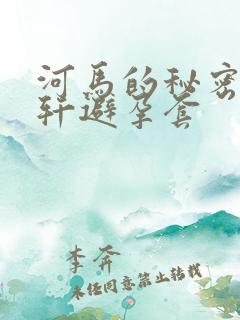 河马的秘密
轩避孕套
李奔
未经同意禁止转载